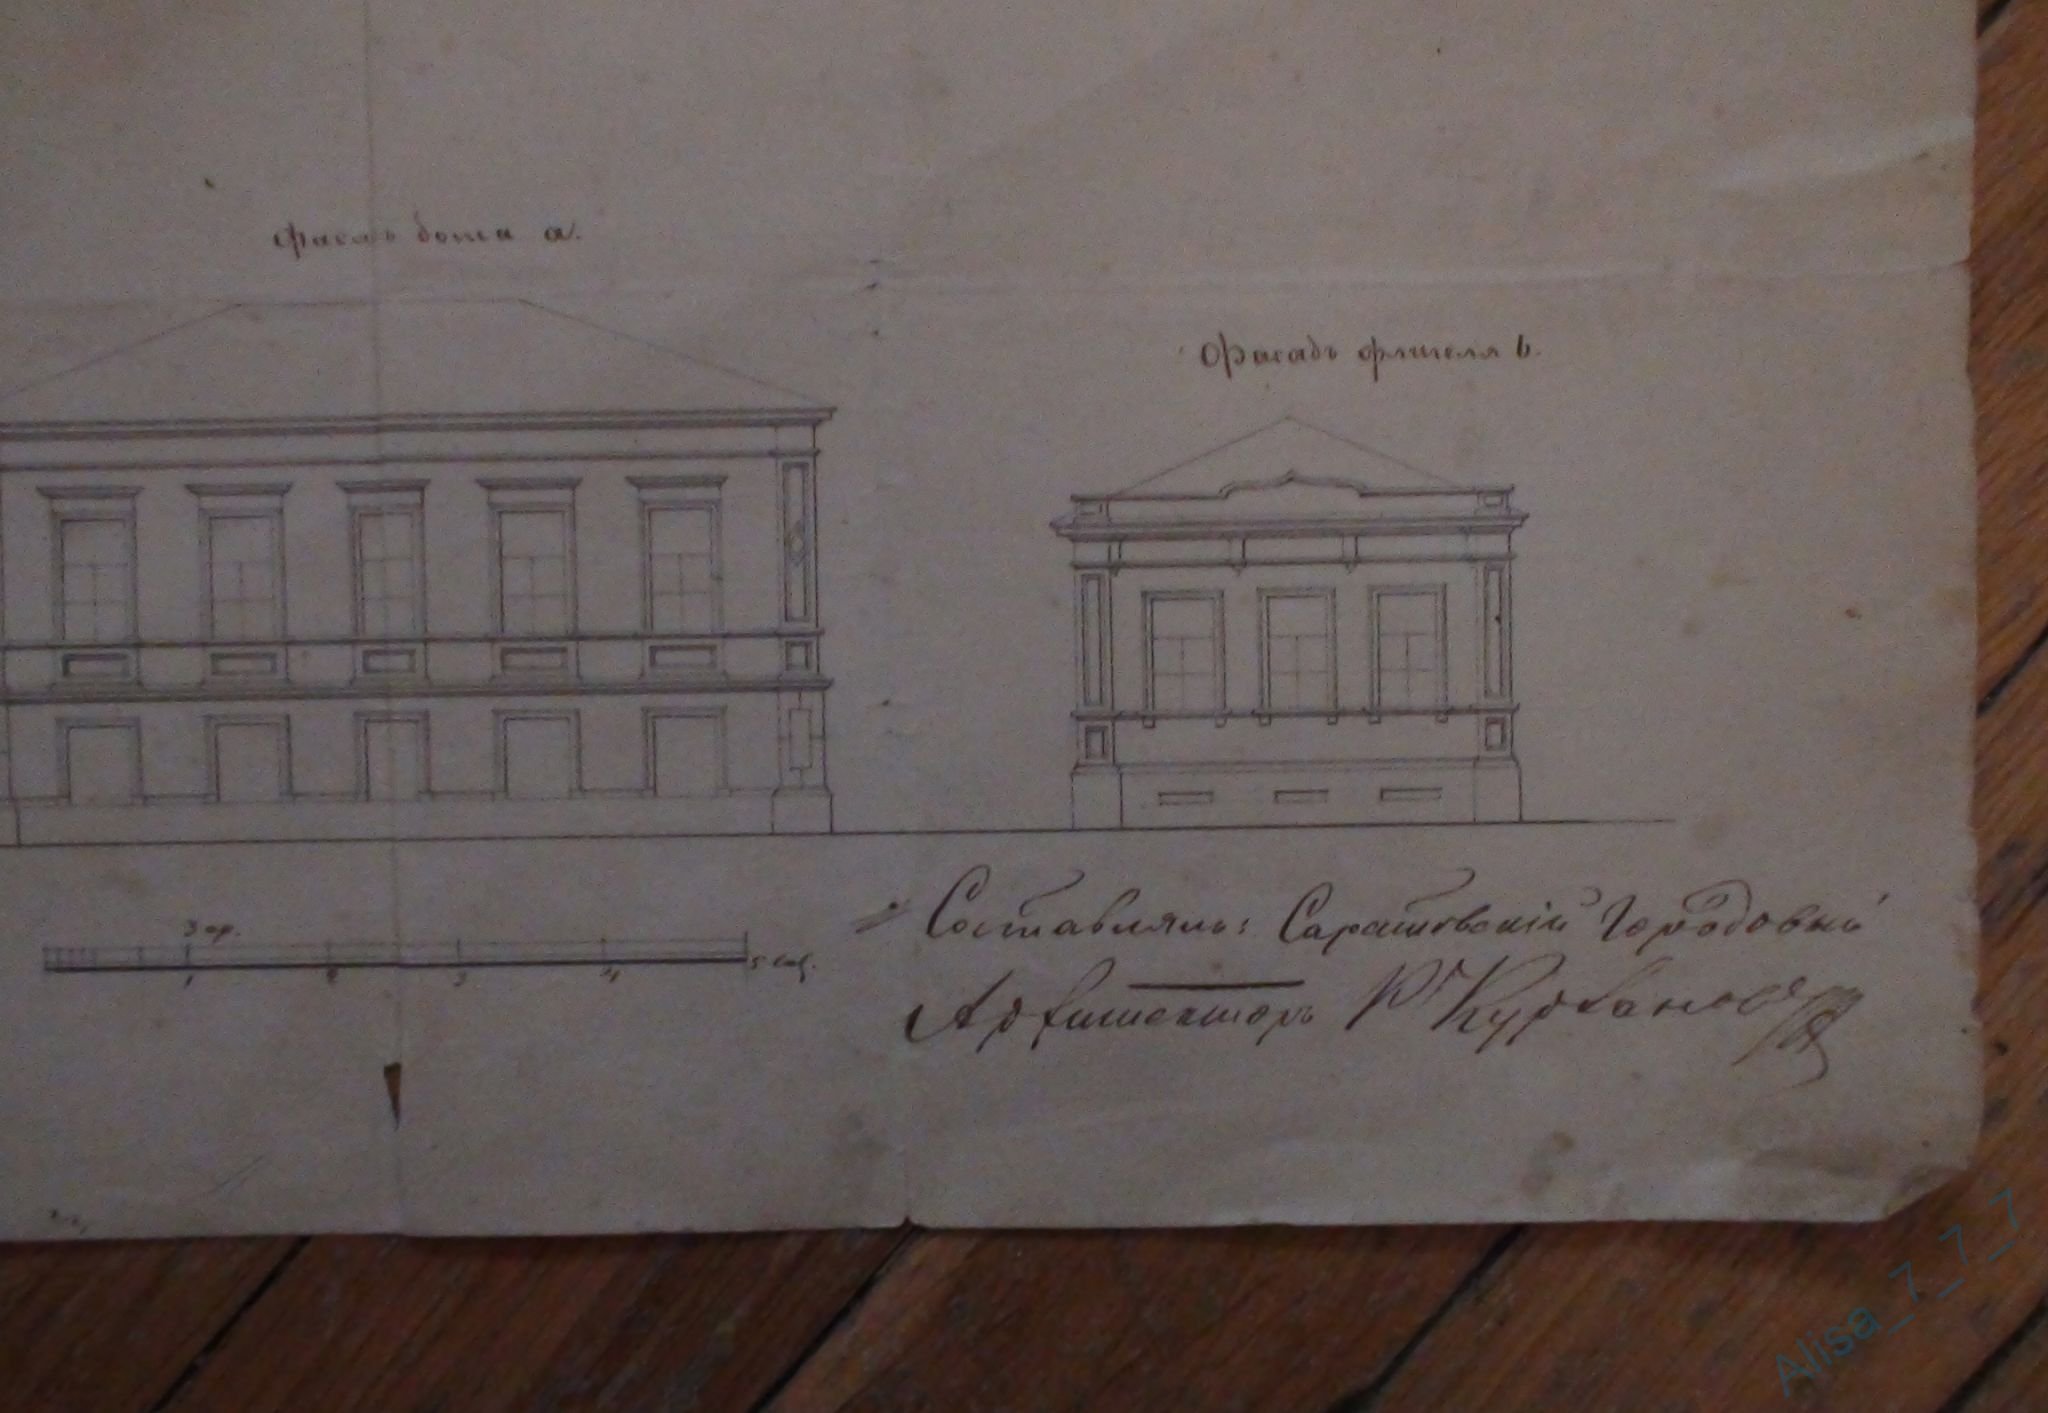 Фасадъ дома а.
Фасадъ флигеля b.
3 ар.
1 2 3 4 5 саж.
Составлялъ: Саратовскій Городовый
Архитекторъ
Alisa_7_7_7